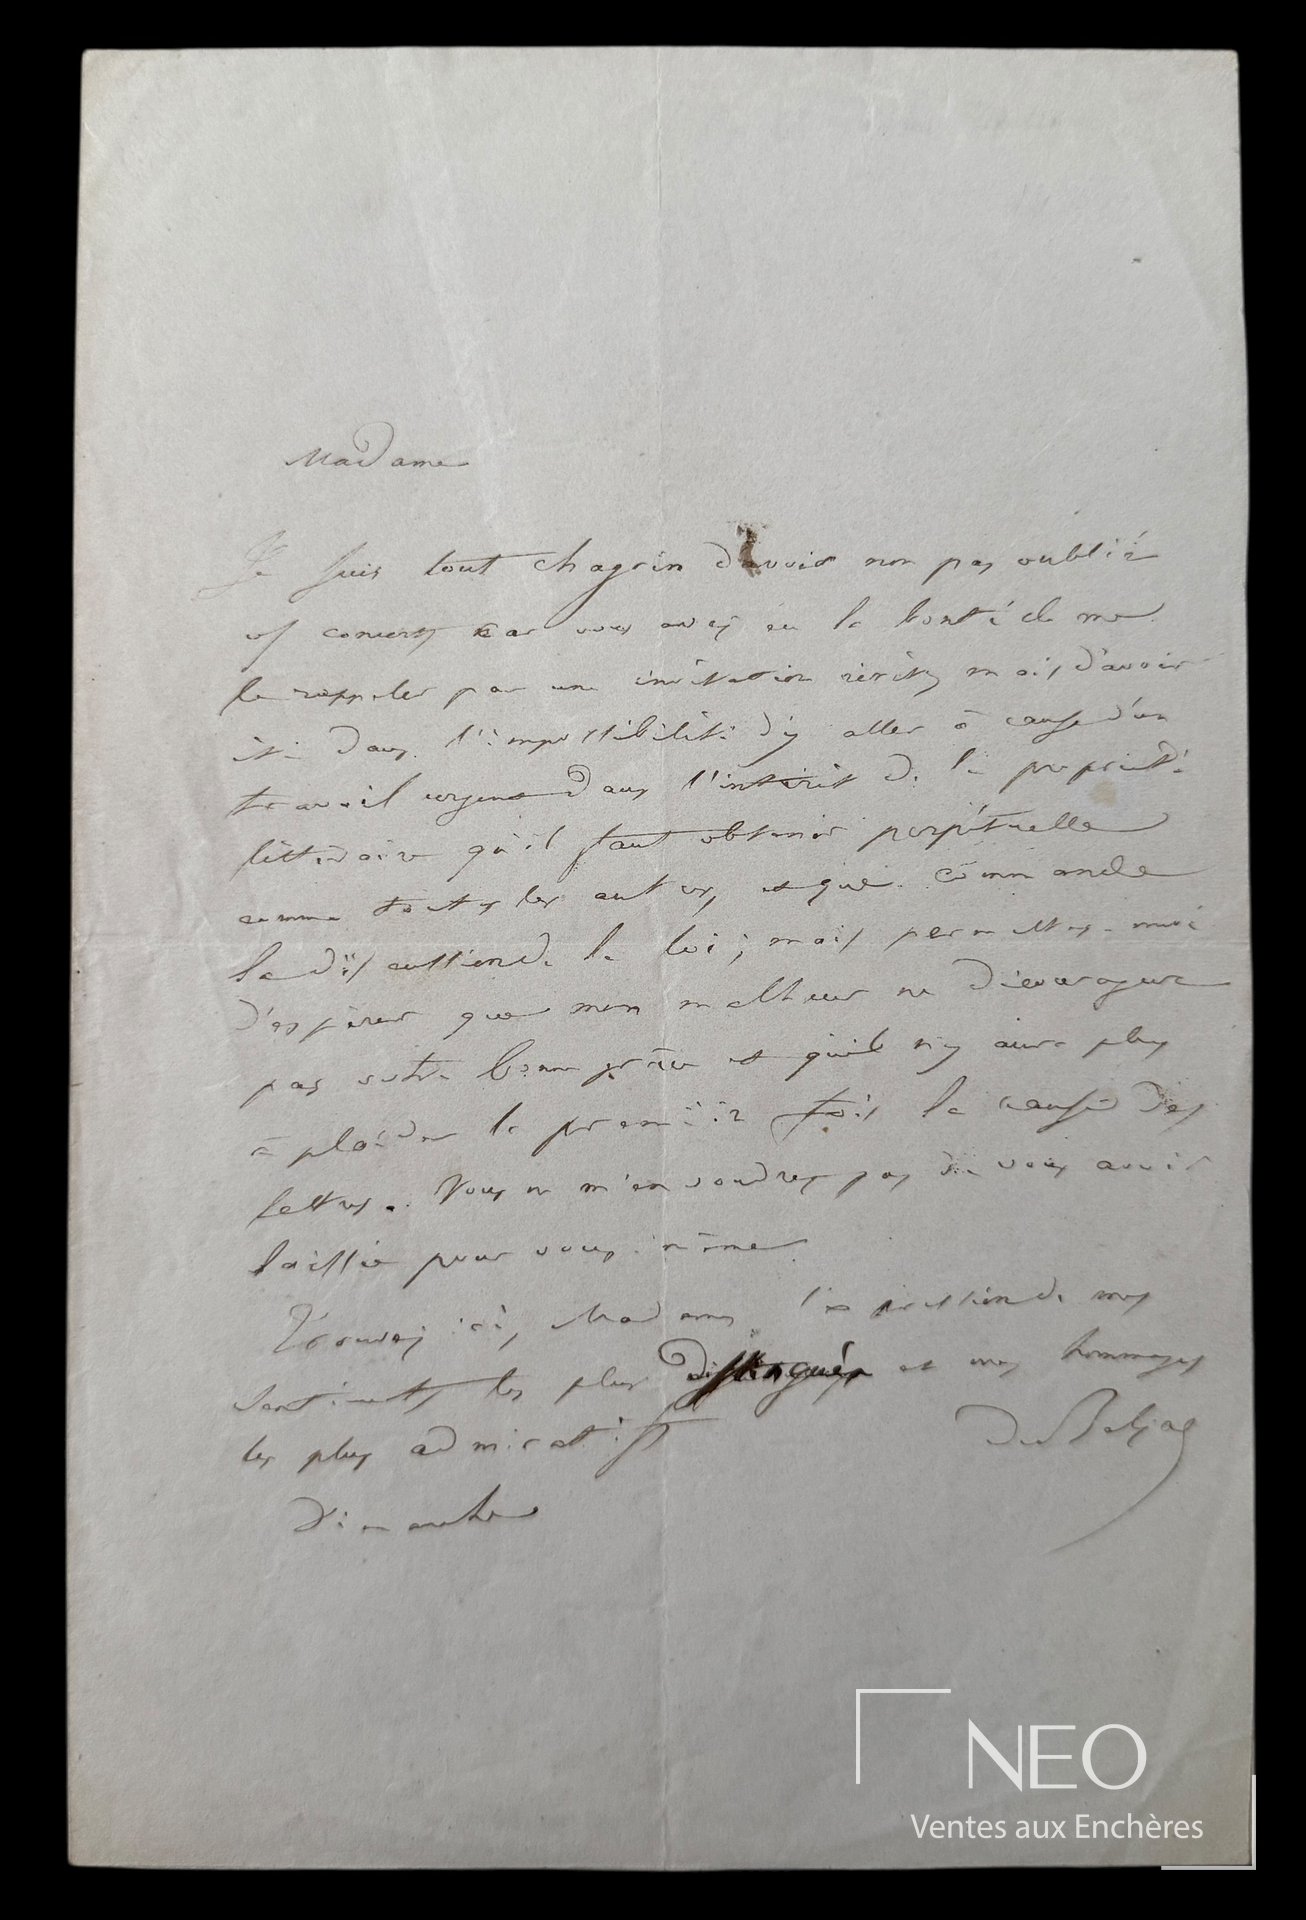 Madame
Je suis tout chagrin d'avoir non pas oublié
car vous avez eu la bonté de me
le rappeler par une invitation mais d'avoir
été dans l'impossibilité d'y aller à cause d'un
travail urgent dans l'intérêt de la propriété
littéraire qu'il faut obtenir perpétuelle
comme toutes les autres, et que commande
la discussion de la loi ; mais permettez-moi
d'espérer que mon malheur ne découragera
pas votre bonne grâce et qu'il n'y aura plus
à plaider la première fois la cause des
lettres. Vous ne m'en voudrez pas de vous avoir
laissée pour vous-même
Trouvez ici, Madame, l'expression de mes
sentiments les plus distingués et mes hommages
les plus admiratifs
de Balzac
Dimanche
NEO
Ventes aux Enchères